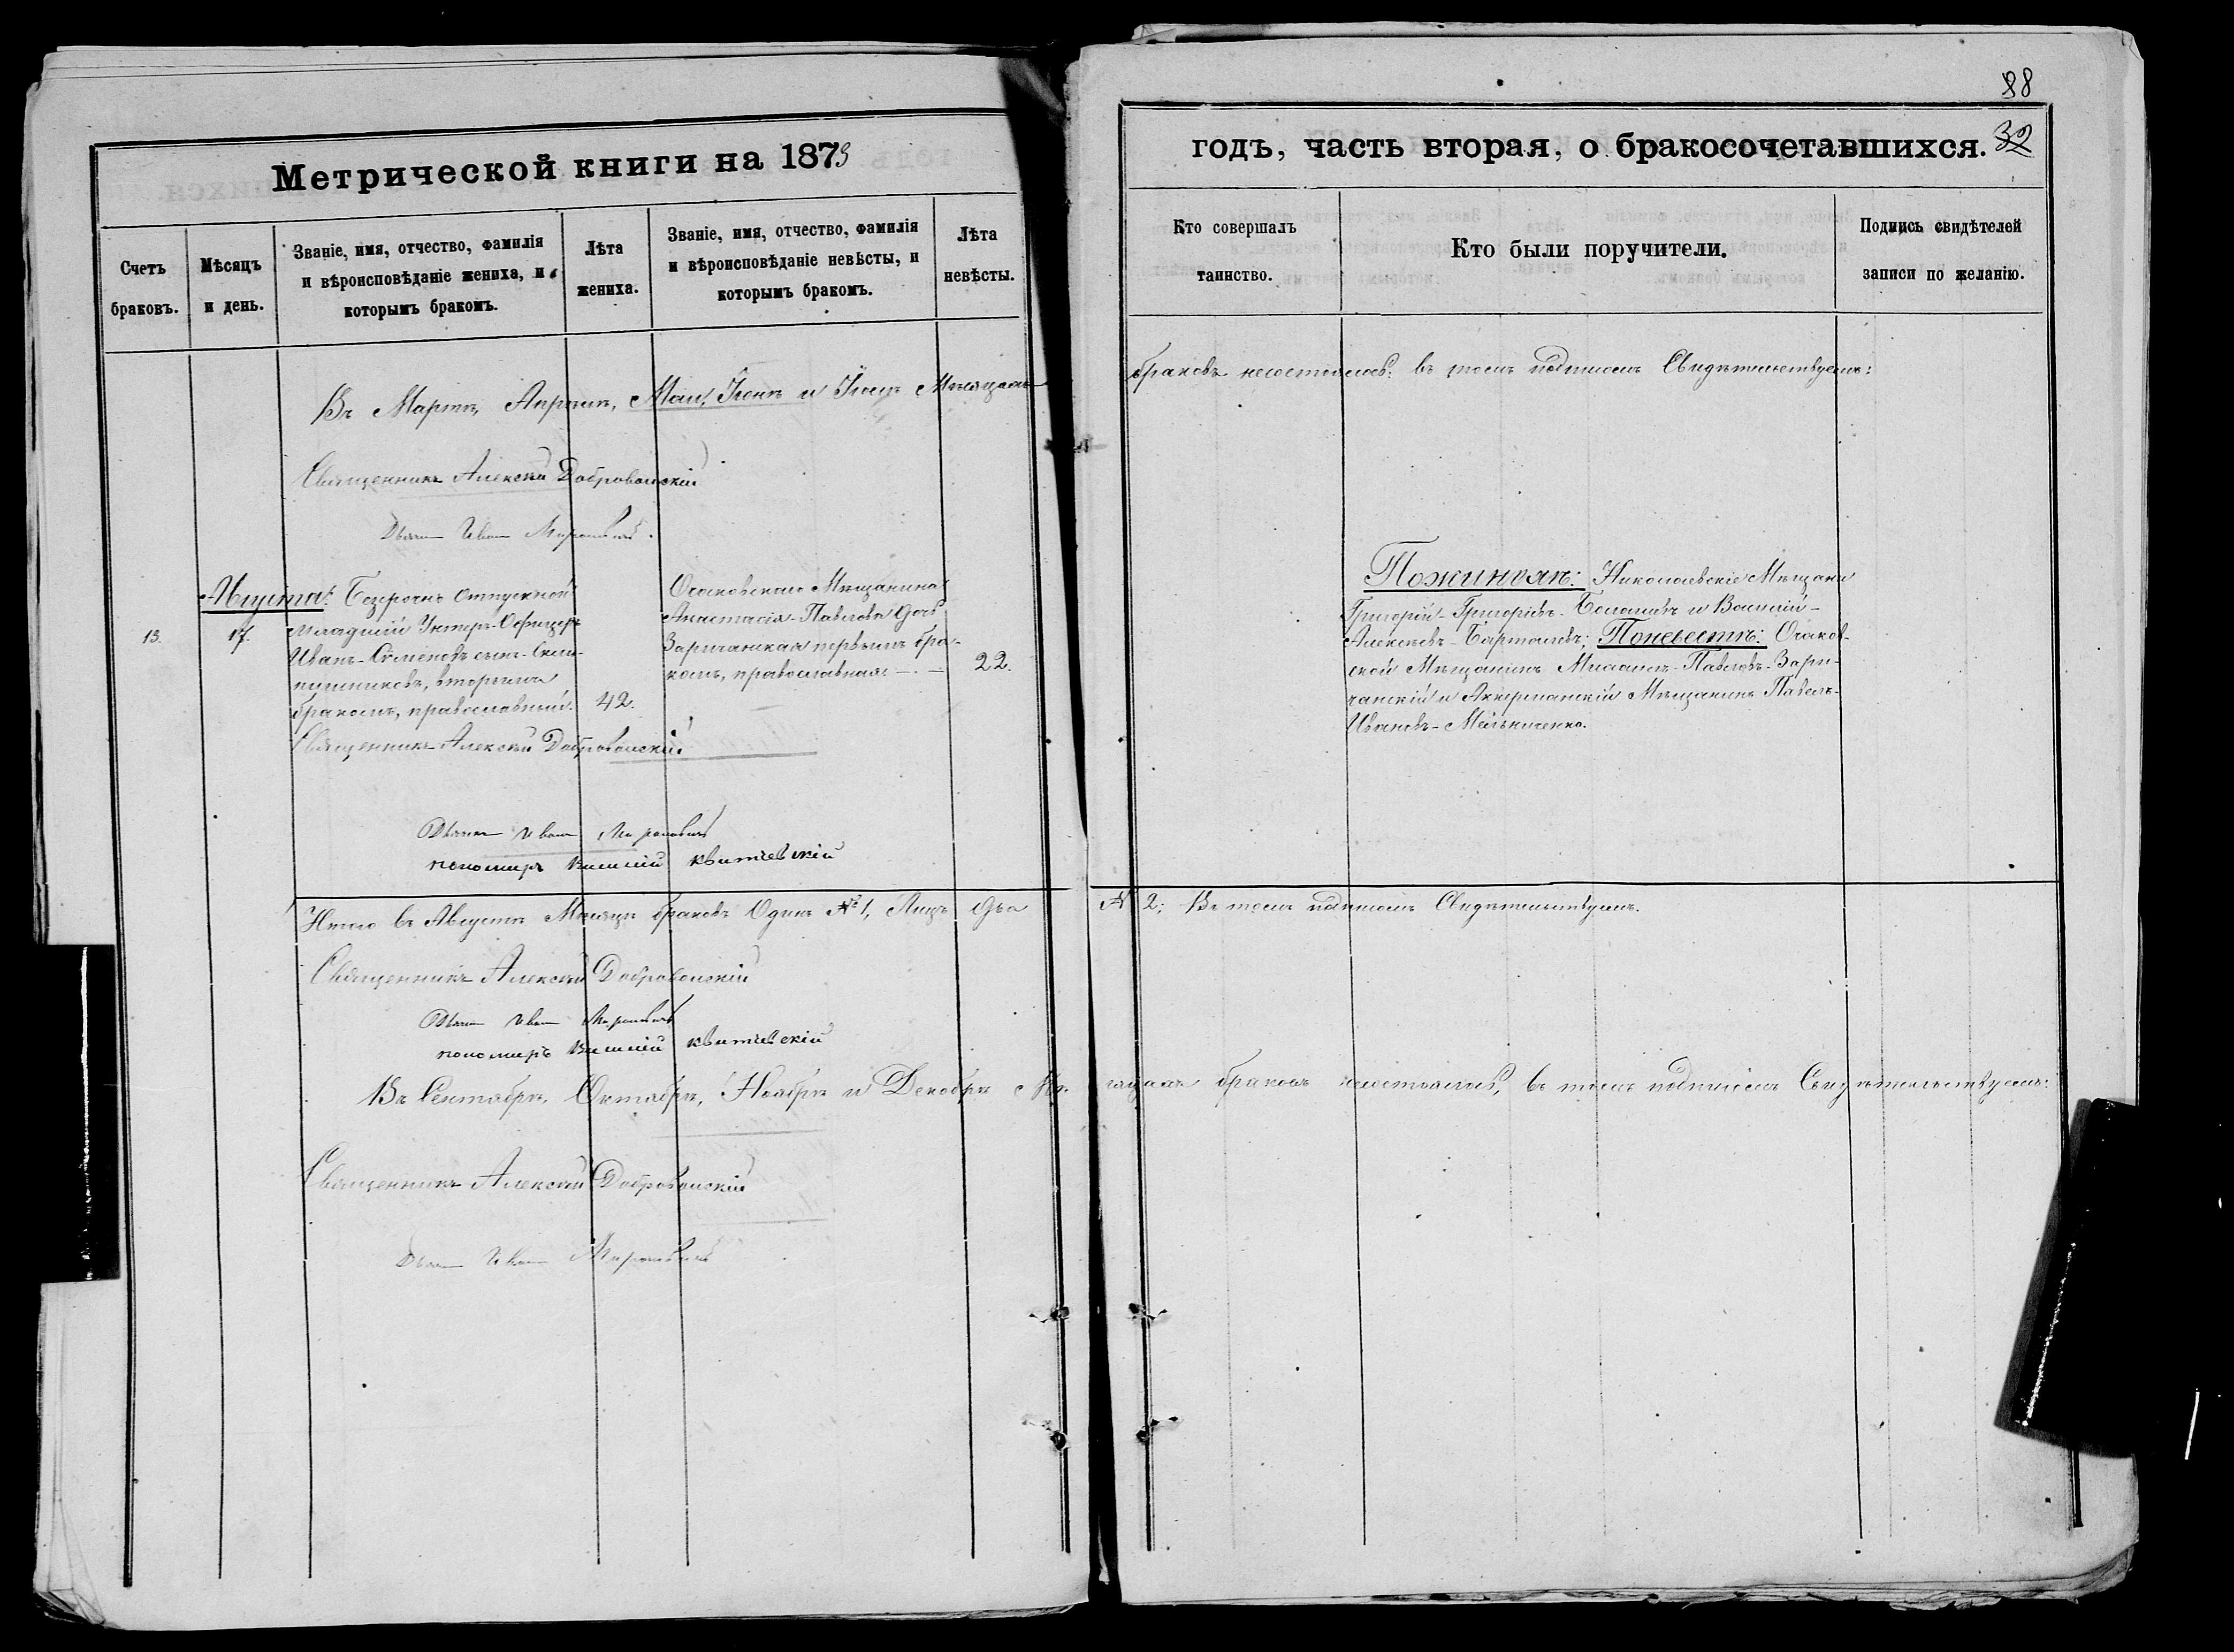 88
Метрической книги на 1873
годъ, часть вторая, о бракосочетавшихся. 32
Счетъ браковъ.
Мѣсяцъ и день.
Званіе, имя, отчество, фамилія
и вѣроисповѣданіе жениха, и
которымъ бракомъ.
Лѣта жениха.
Званіе, имя, отчество, фамилія
и вѣроисповѣданіе невѣсты, и
которымъ бракомъ.
Лѣта невѣсты.
Кто совершалъ таинство.
Кто были поручители.
Подпись свидѣтелей
записи по желанію.
Въ Мартѣ, Апрѣлѣ, Маи, Іюнѣ и Іюлѣ Мѣсяцахъ
браковъ несостоялось: въ томъ подписомъ Свидѣтельствуемъ:
Священникъ Алексѣй Добровольскій
Дьячокъ Иванъ
Августа.
13.
17.
Безсрочно отпускной
младшій Унтеръ-Офицеръ
Иванъ-Семеновъ сынъ
вторымъ
бракомъ, православный.
42.
Священникъ Алексѣй Добровольскій
Очаковскаго Мѣщанина
Анастасія-Павлова дочь
Заричанская первымъ бра-
комъ, православная.
22.
Пожинихѣ: Николаевскіе Мѣщане
Григорій-Григорьевъ и Василій-
Алексѣевъ; Поневестѣ: Очаков-
ской Мѣщанинъ Павловъ-Зари-
чанскій и Аккерманскій Мѣщанинъ Павелъ-
Ивановъ-Мельниченко.
Дьячокъ Иванъ
пономарь Василій Квитковскій
Итого въ Августѣ Мѣсяцѣ браковъ Одинъ № 1, Лицъ два
№ 2; Въ томъ подписомъ Свидѣтельствуемъ.
Священникъ Алексѣй Добровольскій
Дьячокъ Иванъ
пономарь Василій Квитковскій
Въ Сентябрѣ, Октябрѣ, Ноябрѣ и Декабрѣ Мѣ-
сяцахъ браковъ несостоялось, въ томъ подписомъ Свидѣтельствуемъ:
Священникъ Алексѣй Добровольскій
Дьячокъ Иванъ